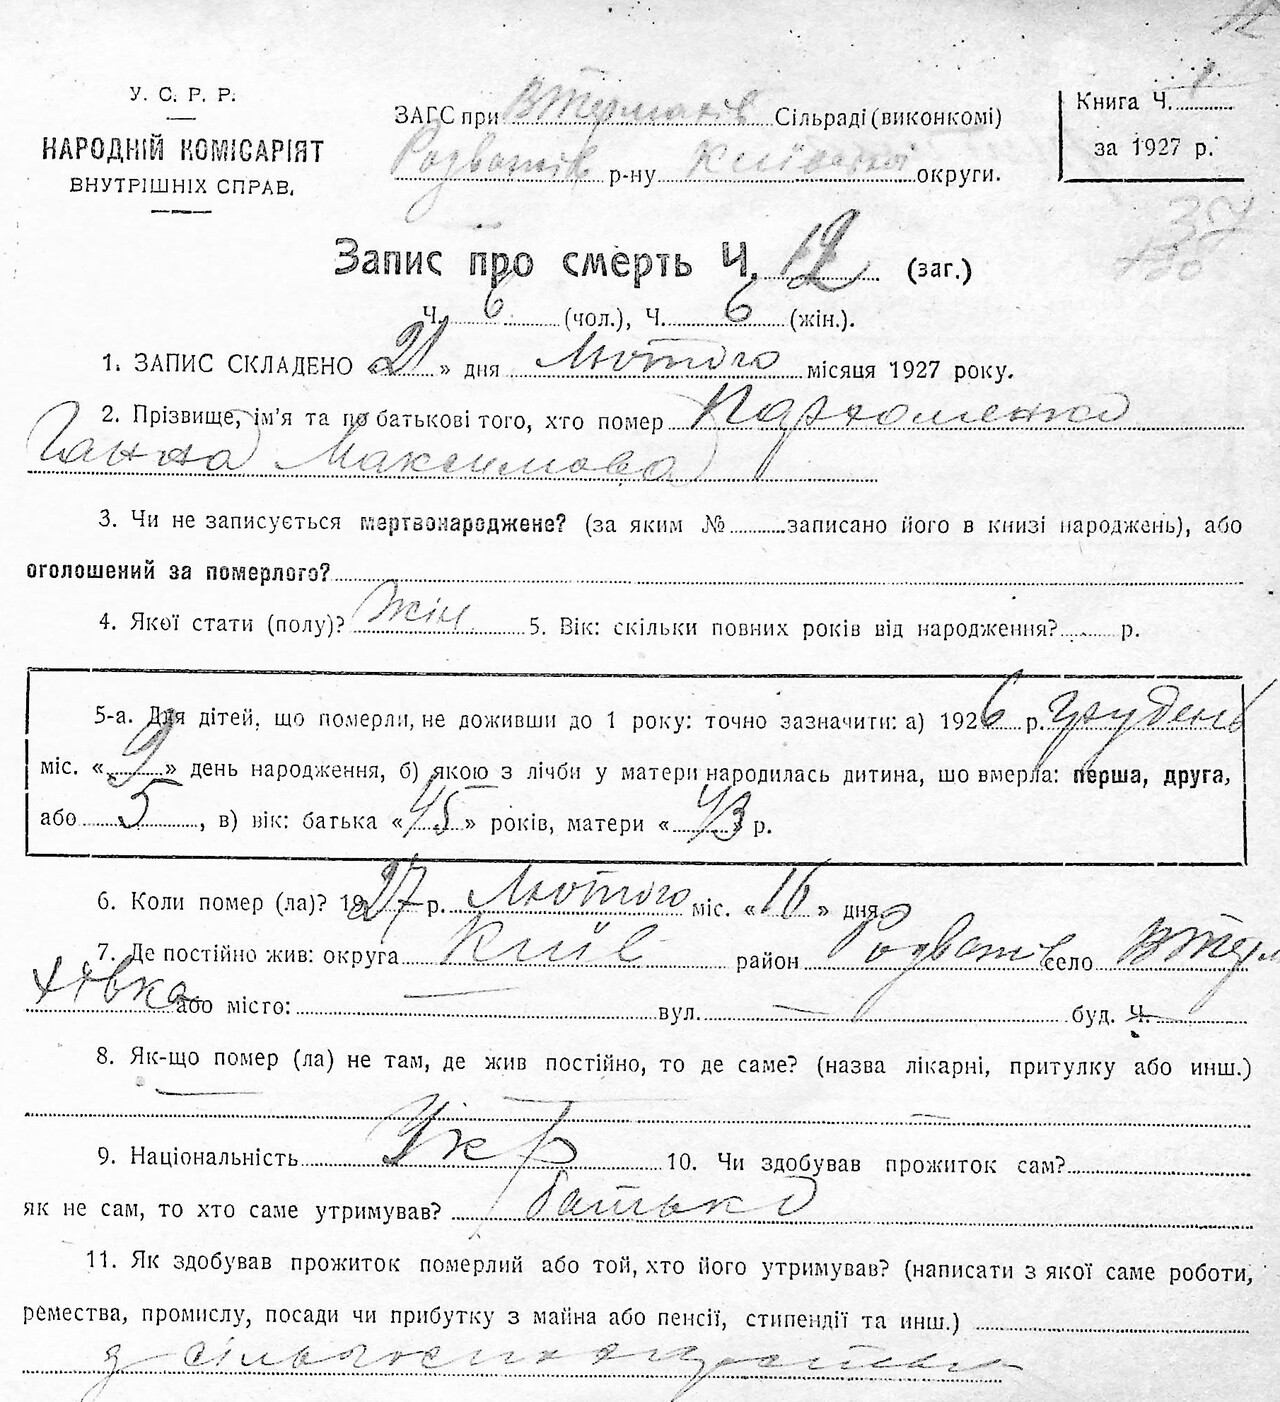 У. С. Р. Р.
НАРОДНІЙ КОМІСАРІЯТ
ВНУТРІШНІХ СПРАВ.
ЗАГС при Сільраді (виконкомі)
Розважів р-ну Київської округи.
Книга Ч. 1
за 1927 р.
37
Запис про смерть Ч. 12 (заг.)
Ч. 6 (чол.), Ч. 6 (жін.).
1. ЗАПИС СКЛАДЕНО «21» дня Лютого місяця 1927 року.
2. Прізвище, ім'я та по батькові того, хто помер Пархоменко
Ганна Максимова
3. Чи не записується мертвонароджене? (за яким № записано його в книзі народжень), або
оголошений за померлого?
4. Якої стати (полу)? Жін. 5. Вік: скільки повних років від народження? р.
5-а. Для дітей, що померли, не доживши до 1 року: точно зазначити: а) 1926 р. Грудень
міс. «9» день народження, б) якою з лічби у матери народилась дитина, що вмерла: перша, друга,
або 5, в) вік: батька «45» років, матери «43 р.
6. Коли помер (ла)? 1927 р. Лютого міс. «16» дня
7. Де постійно жив: округа Київ район Розважів село В Терм
ахівка або місто: — вул. — буд. Ч. —
8. Як-що помер (ла) не там, де жив постійно, то де саме? (назва лікарні, притулку або инш.)
9. Національність Укр 10. Чи здобував прожиток сам?
як не сам, то хто саме утримував? батько
11. Як здобував прожиток померлий або той, хто його утримував? (написати з якої саме роботи,
ремества, промислу, посади чи прибутку з майна або пенсії, стипендії та инш.)
з